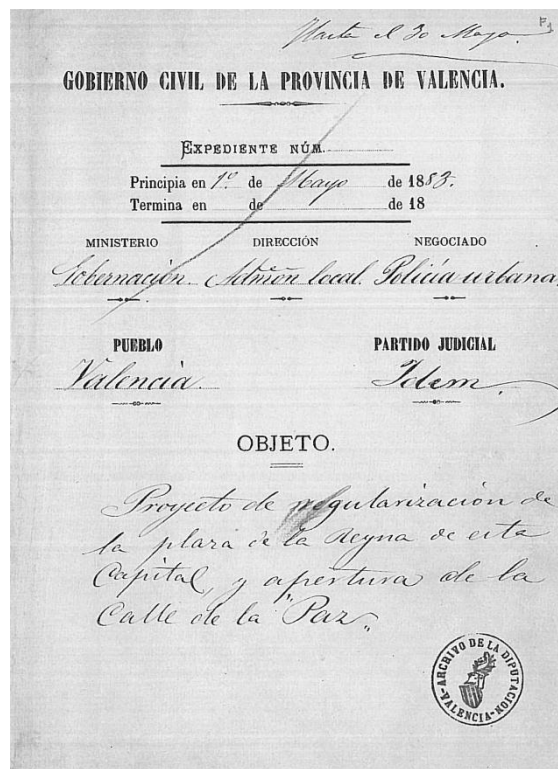 Hasta el 30 Mayo.
P1
GOBIERNO CIVIL DE LA PROVINCIA DE VALENCIA.
EXPEDIENTE NÚM.
Principia en 1º de Mayo de 1883.
Termina en de de 18
MINISTERIO DIRECCIÓN NEGOCIADO
Gobernación. Admón local. Policía urbana.
PUEBLO PARTIDO JUDICIAL
Valencia. Idem.
OBJETO.
Proyecto de regularización de
la plaza de la Reyna de esta
Capital, y apertura de la
Calle de la "Paz„
ARCHIVO DE LA DIPUTACION
-VALENCIA-